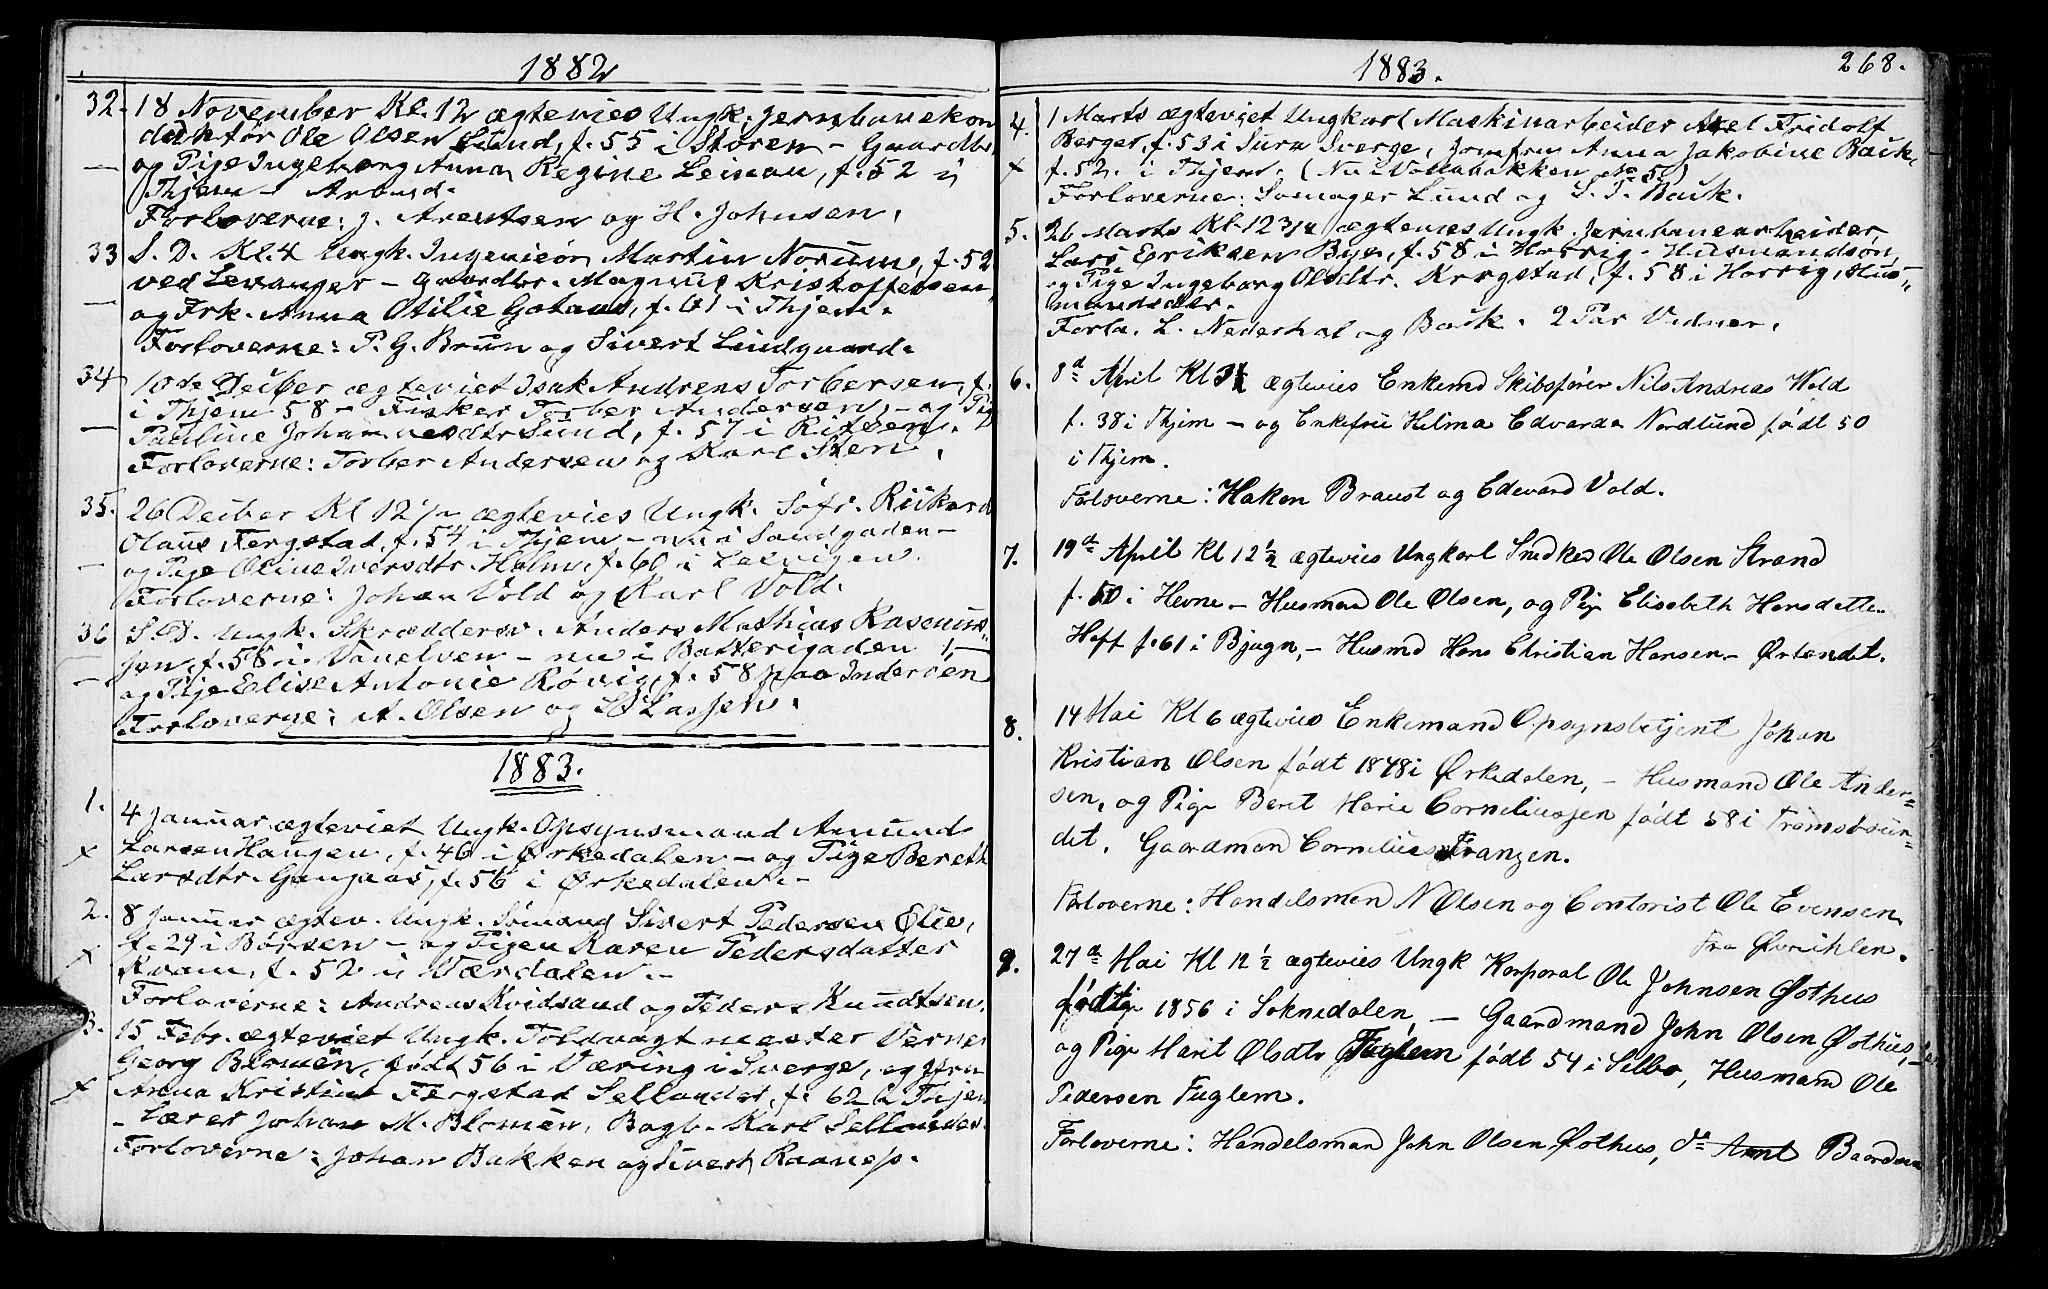 1882
32. 18 November Kl. 12 ægtevies Ungk. Jernbanekon
duktør Ole Olsen Lund, f. 55 i Støren - Gaardbr.
og Pige Ingeborg Anna Regine Leinan, f. 52 i
Thjem - Arbmd.
Forloverne: J. Arentsen og H. Johnsen.
33 S. D. Kl. 4 Ungk. Ingeniør Martin Norum, f. 52
ved Levanger - Gaardbr. Magnus Kristoffersen,
og Frk. Anna Otilie Gotaas, f. 61 i Thjem.
Forloverne: P. G. Brun og Sivert Lundgaard.
34 10de Decber ægteviet Isak Andreas Torbersen, f.
i Thjem 58 - Fisker Torber Andersen, - og Pig
Pauline Johannesdtr Sund, f. 57 i Ritsen.
Forloverne: Torber Andersen og Karl Sten.
35. 26 Decber Kl 12 1/2 ægtevies Ungk. Søfr. Rikard
Olaus Fergstad, f. 54 i Thjem - nu i Sandgaden -
og Pige Oline Iversdtr. Holm, f. 60 i Lexvigen.
Forloverne: Johan Vold og Karl Vold.
36 S. D. Ungk. Skræddersv. Anders Mathias Rasmus-
sen, f. 58 i Vanelven - nu i Batterigaden 1, -
og Pige Elise Antonie Røvig, f. 58 paa Inderøen
Forloverne: A. Olsen og Larssen.
1883.
1. 4 Januar ægteviet Ungk. Opsynsmand Amund
Larsen Haugen, f. 46 i Ørkedalen - og Pige Bereth
Larsdtr. Gangaas, f. 56 i Ørkedalen. -
2. 8 Januar ægtev. Ungk. Sømand Sivert Pedersen Ølie,
f. 29 i Børsen - og Pigen Karen Pedersdatter
Kvam, f. 52 i Værdalen. -
Forloverne: Andreas Kvidsand og Peder Knudtsen.
3. 15 Febr. ægteviet Ungk. Toldvagtmester Verner
Georg Blomén, født 56 i Væring i Sverge, og Jfru
Anna Kristine Fergstad Sellander, f. 62 i Thjem
- Lærer Johan M. Blomén, Bogb. Karl Sellander.
Forloverne: Johan Bakken og Sivert Raanes.
1883. 268.
4. 1 Marts ægteviet Ungkarl Maskinarbeider Axel Fridolf
Berger, f. 53 i Sura Sverge, Jomfru Anna Jakobine Bask,
f. 52. i Thjem. (Nu i Vollabakken No 5)
Forloverne: Sømager Lund og S. P. Bask.
5. 26 Marts Kl. 12 3/4 ægtevies Ungk. Jernbanearbeider
Lars Eriksen Bye, f. 58 i Horrig - Husmandsøn,
og Pige Ingeborg Olsdtr. Krogstad, f. 58 i Horrig, Hus-
mandsdtr.
Forlo. L. Nederhal og Bask. 2 Par Vidner.
6. 8d April Kl ægtevies Enkemd Skibsfører Nils Andreas Wold
f. 38 i Thjem - og Enkefru Hilma Edvarda Nordlund født 50
i Thjem.
Forloverne: Haken Braust og Edevard Vold.
7. 19d April Kl 12 1/2 ægtevies Ungkarl Snedker Ole Olsen Strand
f. 50 i Hevne - Husmand Ole Olsen, og Pige Elisabeth Hansdatter
Hoff f. 61 i Bjugn, - Husmd Hans Christian Hansen - Ørlandet.
8. 14 Mai Kl 6 ægtevies Enkemand Opsynsbetjent Johan
Kristian Olsen født 1848 i Ørkedalen, - Husmand Ole Ander-
sen, og Pige Beret Marie Corneliussen født 58 i Tromsøsun-
det, Gaardmand Cornelius Franzen.
Forloverne: Handelsmand N Olsen og Contorist Ole Evensen
fra Øvrihlen.
9. 27d Mai Kl 12 1/2 ægtevies Ungk Korporal Ole Johnsen Østhus
født 1856 i Soknedalen, - Gaardmand John Olsen Østhus, -
og Pige Marit Olsdtr Fuglem født 54 i Selbo, Husmand Ole
Pedersen Fuglem.
Forloverne: Handelsman John Olsen Østhus, do Arnt Baardsen